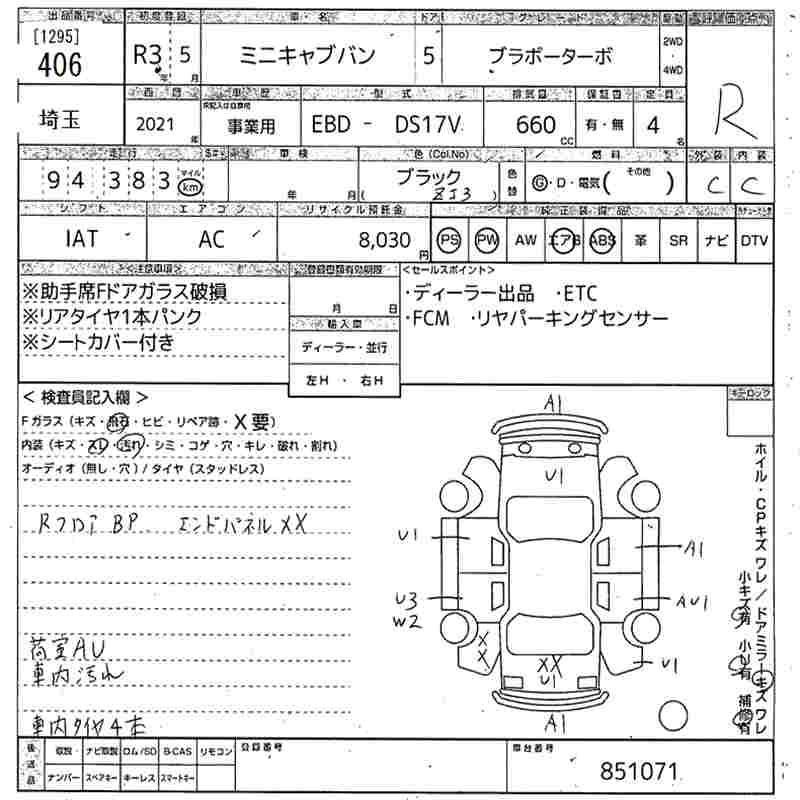 出品番号 初度登録 車・名 ドア グレード 駆動 評価点
[1295]
406
R3 年 5 月 ミニキャブバン 5 ブラボーターボ 2WD ・ 4WD
R
埼玉
西暦 車歴 型式 排気量 保証書 定員
2021 年 事業用 EBD - DS17V 660 CC 有・無 4 名
走行 車検 色(Col.No) 燃料 外装 内装
94,383 マイル km 年 月 ブラック ( ZJ3 ) 色替 G・D・電気 ( その他 ) C C
シフト エアコン リサイクル預託金 純正装備品
IAT AC 8,030円 PS PW AW エアB ABS 革 SR ナビ DTV
<注意事項> 登録書類有効期限 <セールスポイント>
※助手席Fドアガラス破損
※リアタイヤ1本パンク
※シートカバー付き
月 日
輸入車
ディーラー・並行
左H ・ 右H
・ディーラー出品 ・ETC
・FCM ・リヤパーキングセンサー
<検査員記入欄>
Fガラス(キズ・飛石・ヒビ・リペア跡・X要)
内装(キズ・スレ・汚れ・シミ・コゲ・穴・キレ・破れ・割れ)
オーディオ(無し・穴)/タイヤ(スタッドレス)
Rフロア BP エンドパネルXX
荷室AU
車内汚れ
車内タイヤ4本
キーロック
A1
U1
U1
A1
U3
W2
AU1
X
X
XX
U1
U1
A1
ホイル・CPキズ ワレ / ドアミラーキズ ワレ
小キズ有 小U有 補修有
後送品
取説 ナビ取説 ロム/SD B-CAS リモコン
ナンバー スペアキー キーレス スマートキー
登録番号
車台番号
851071